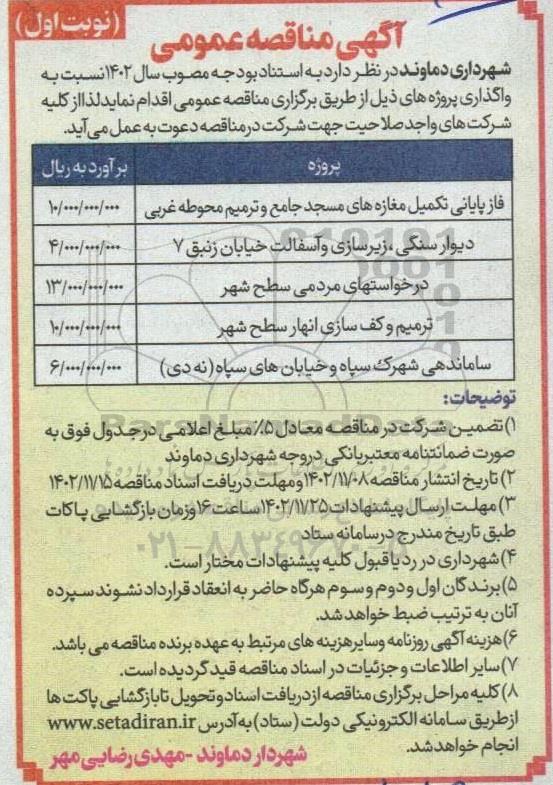 (نوبت اول)
آگهی مناقصه عمومی
شهرداری دماوند در نظر دارد به استناد بودجه مصوب سال ۱۴۰۲ نسبت به
واگذاری پروژه های ذیل از طریق برگزاری مناقصه عمومی اقدام نماید لذا از کلیه
شرکت های واجد صلاحیت جهت شرکت در مناقصه دعوت به عمل می آید.
پروژه برآورد به ریال
فاز پایانی تکمیل مغازه های مسجد جامع و ترمیم محوطه غربی ۱۰/۰۰۰/۰۰۰/۰۰۰
دیوار سنگی ، زیرسازی و آسفالت خیابان زنبق ۷ ۴/۰۰۰/۰۰۰/۰۰۰
درخواستهای مردمی سطح شهر ۱۳/۰۰۰/۰۰۰/۰۰۰
ترمیم و کف سازی انهار سطح شهر ۱۰/۰۰۰/۰۰۰/۰۰۰
ساماندهی شهرک سپاه و خیابان های سپاه (نه دی) ۶/۰۰۰/۰۰۰/۰۰۰
توضیحات:
۱) تضمین شرکت در مناقصه معادل ۵٪ مبلغ اعلامی در جدول فوق به
صورت ضمانتنامه معتبر بانکی در وجه شهرداری دماوند
۲) تاریخ انتشار مناقصه ۱۴۰۲/۱۱/۰۸ و مهلت دریافت اسناد مناقصه ۱۴۰۲/۱۱/۱۵
۳) مهلت ارسال پیشنهادات ۱۴۰۲/۱۱/۲۵ ساعت ۱۶ و زمان بازگشایی پاکات
طبق تاریخ مندرج در سامانه ستاد
۴) شهرداری در رد یا قبول کلیه پیشنهادات مختار است.
۵) برندگان اول و دوم و سوم هرگاه حاضر به انعقاد قرارداد نشوند سپرده
آنان به ترتیب ضبط خواهد شد.
۶) هزینه آگهی روزنامه و سایر هزینه های مرتبط به عهده برنده مناقصه می باشد.
۷) سایر اطلاعات و جزئیات در اسناد مناقصه قید گردیده است.
۸) کلیه مراحل برگزاری مناقصه از دریافت اسناد و تحویل تا بازگشایی پاکت ها
از طریق سامانه الکترونیکی دولت (ستاد) به آدرس www.setadiran.ir
انجام خواهد شد.
شهردار دماوند - مهدی رضایی مهر
ParsNamadData
۰۲۱-۸۸۳۴۹۶۷۰-۵